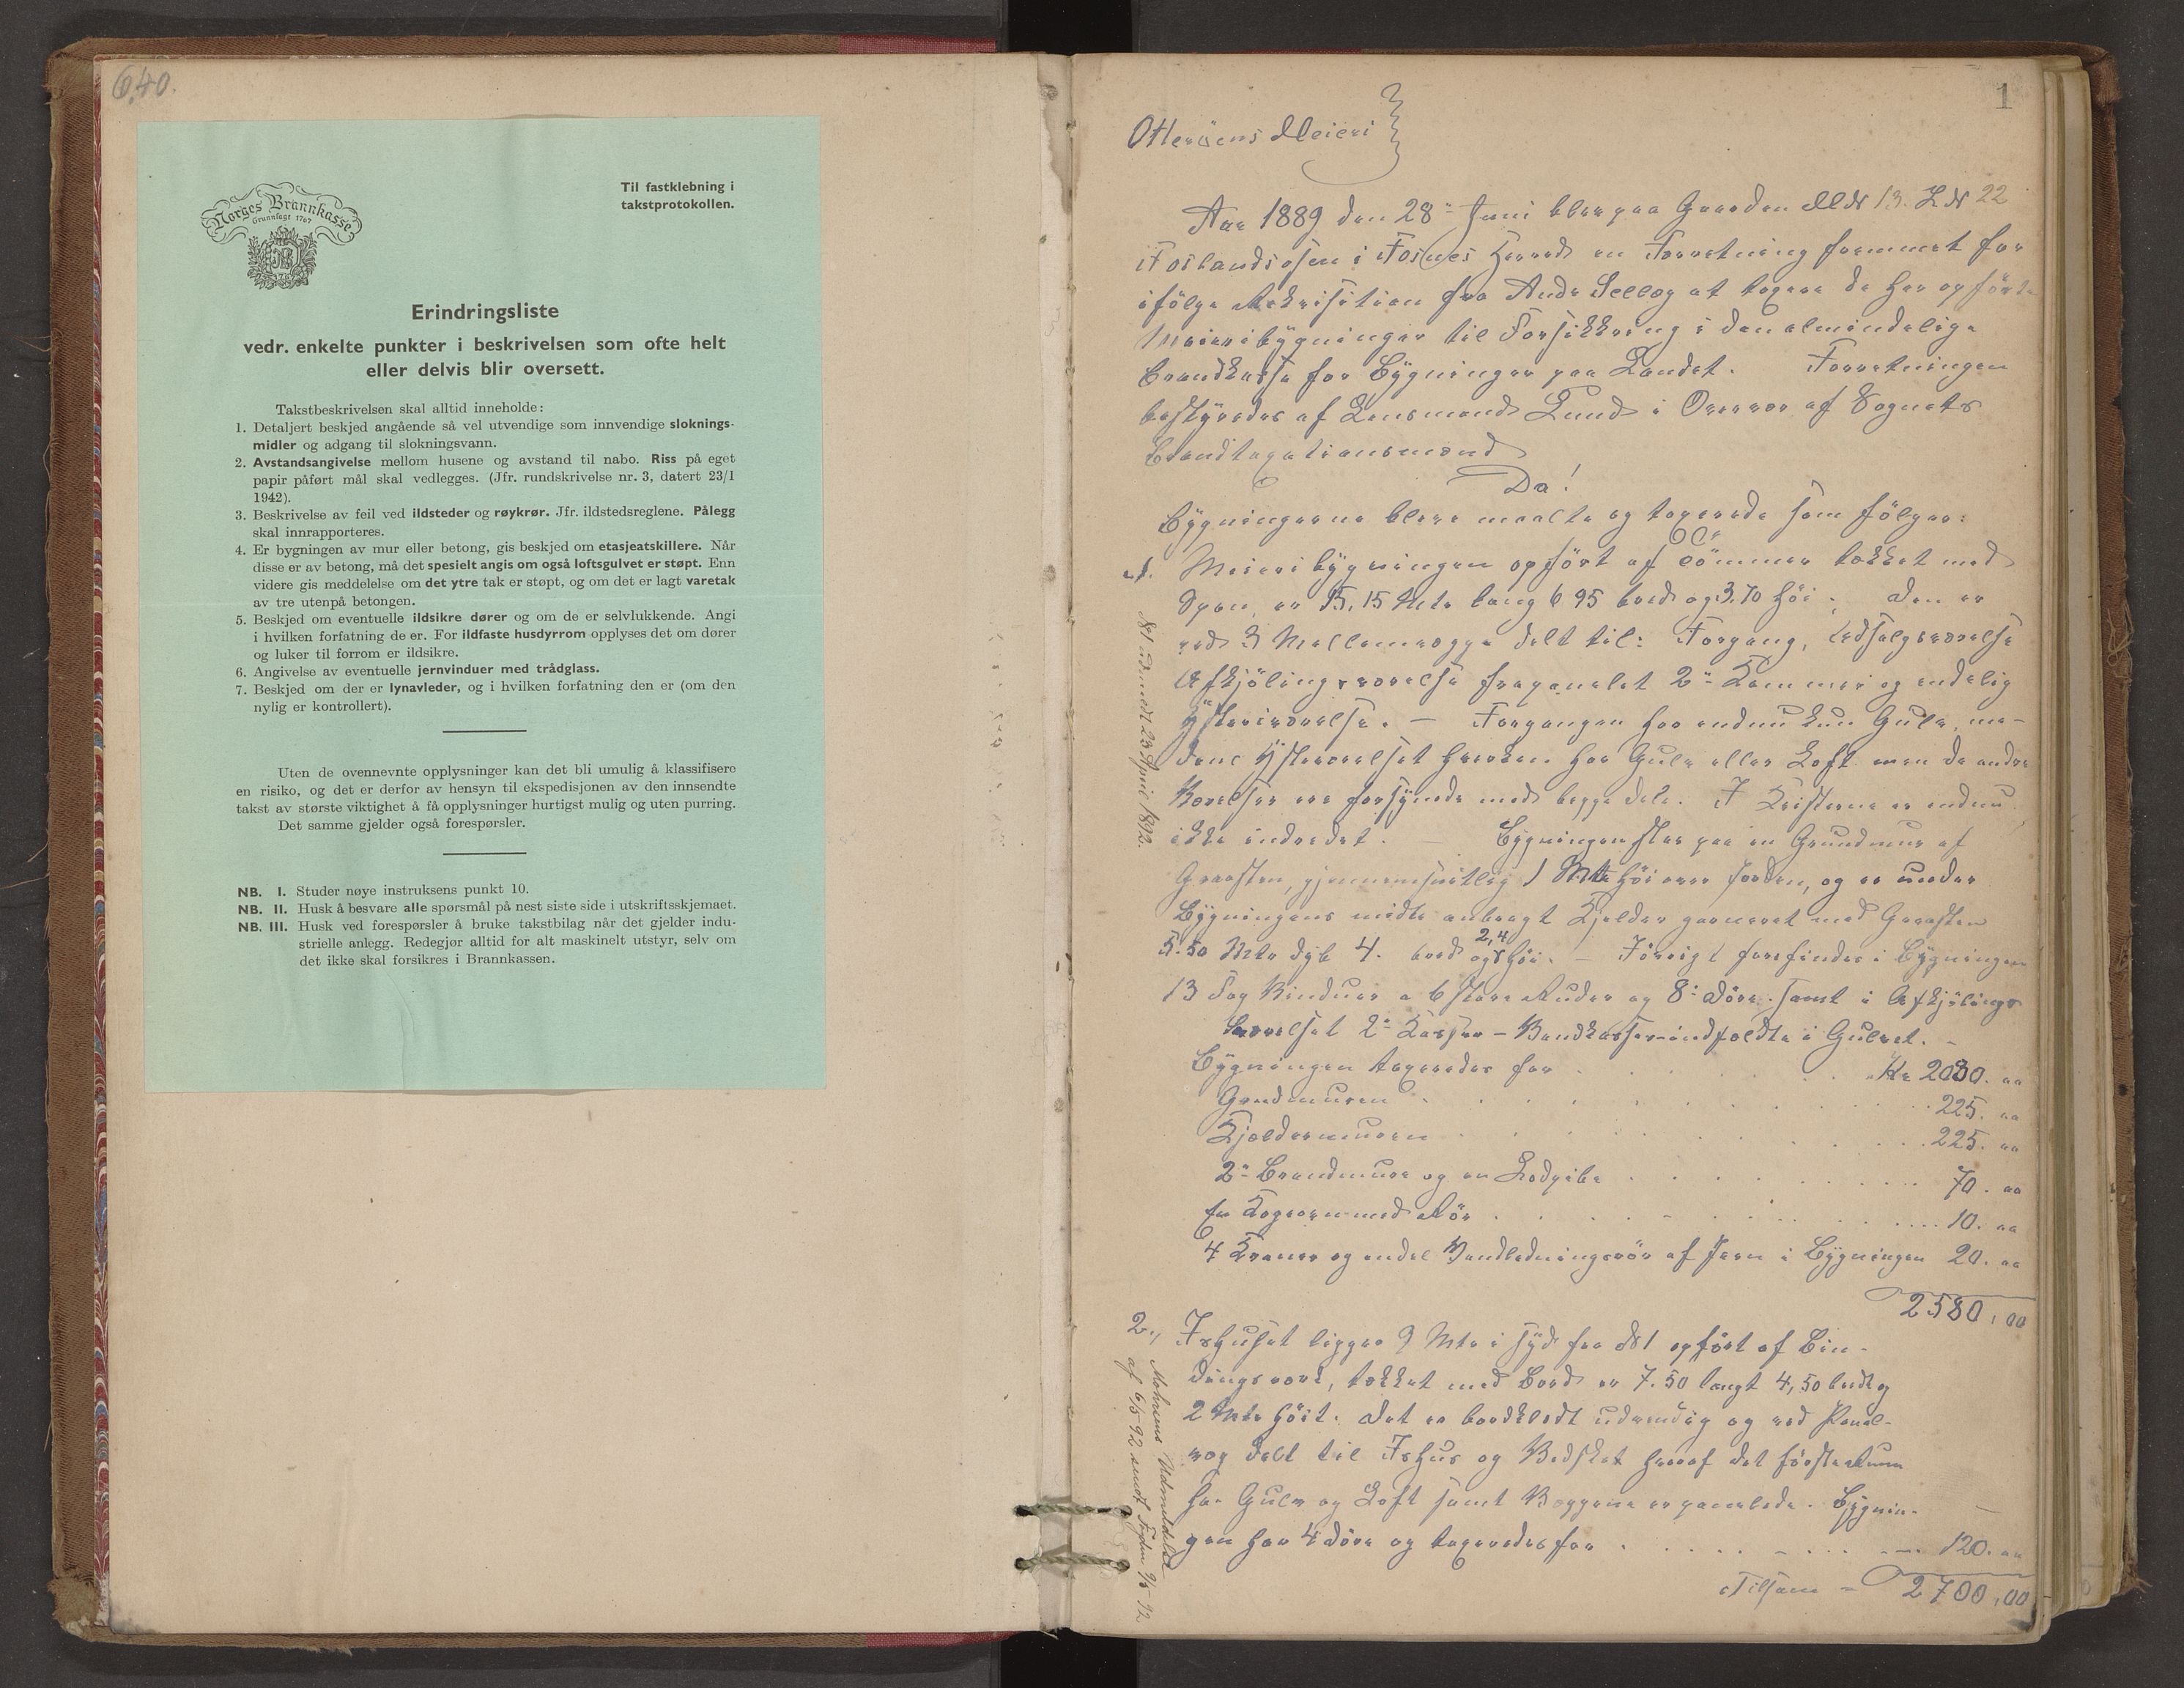 640.
Norges Brannkasse
Grunnlagt 1767
Til fastklebning i
takstprotokollen.
Erindringsliste
vedr. enkelte punkter i beskrivelsen som ofte helt
eller delvis blir oversett.
Takstbeskrivelsen skal alltid inneholde:
1. Detaljert beskjed angående så vel utvendige som innvendige sloknings-
midler og adgang til slokningsvann.
2. Avstandsangivelse mellom husene og avstand til nabo. Riss på eget
papir påført mål skal vedlegges. (Jfr. rundskrivelse nr. 3, datert 23/1
1942).
3. Beskrivelse av feil ved ildsteder og røykrør. Jfr. ildstedsreglene. Pålegg
skal innrapporteres.
4. Er bygningen av mur eller betong, gis beskjed om etasjeatskillere. Når
disse er av betong, må det spesielt angis om også loftsgulvet er støpt. Enn
videre gis meddelelse om det ytre tak er støpt, og om det er lagt varetak
av tre utenpå betongen.
5. Beskjed om eventuelle ildsikre dører og om de er selvlukkende. Angi
i hvilken forfatning de er. For ildfaste husdyrrom opplyses det om dører
og luker til forrom er ildsikre.
6. Angivelse av eventuelle jernvinduer med trådglass.
7. Beskjed om der er lynavleder, og i hvilken forfatning den er (om den
nylig er kontrollert).
Uten de ovennevnte opplysninger kan det bli umulig å klassifisere
en risiko, og det er derfor av hensyn til ekspedisjonen av den innsendte
takst av største viktighet å få opplysninger hurtigst mulig og uten purring.
Det samme gjelder også forespørsler.
NB. I. Studer nøye instruksens punkt 10.
NB. II. Husk å besvare alle spørsmål på nest siste side i utskriftsskjemaet.
NB. III. Husk ved forespørsler å bruke takstbilag når det gjelder indu-
strielle anlegg. Redegjør alltid for alt maskinelt utstyr, selv om
det ikke skal forsikres i Brannkassen.
1
Otteröens Meieri
Aar 1889 den 28de Juni blev paa Gaarden M№ 13. L№ 22
Foslandsosen i Fosnes Herred en Forretning fremmet for
ifölge Rekvisition fra Andr Selleg at taxere de her opförte
Meieribygninger til Forsikkring i den almindelige
Brandkasse for Bygninger paa Landet. Forretningen
bestyredes af Lensmand Lund i Overvær af Sognets
Brandtaxationsmænd
Da!
Bygningerne bleve maalte og taxerede som fölger:
1. Meieribygningen opfört af Tömmer tækket med
Spon, er 15,15 Mtr lang 6 95 bred og 3,70 höi. Den er
ved 3 Mellemvægge delt til: Forgang, Udsalgsværelse
Afkjölingsværelse frapanelet 2de Kammeri og endelig
Ysteriværelse. — Forgangen har endnu kun Gulv, me-
dens Ysteværelset hverken har Gulv eller Loft men de andre
Værelser ere forsynede med begge dele. I Kvisterne er endnu
ikke indredet. — Bygningen staar paa en Grundmur af
Graasten, gjennemsnitlig 1 Mtr höi over Jorden, og er under
Bygningens midte anbragt Kjelder garneret med Graasten
5.50 Mtr dyb 4. bred og 2,4 höi. — Iövrigt forefindes i Bygningen
13 Fag Vinduer a 6 store Ruder og 8 Döre. samt i Afkjölings
Værelset 2de Kasser - Vandkasser - indfældte i Gulvet. -
Bygningen taxeredes for Kr 2030. 00
Grundmuren 225. 00
Kjeldermuren 225. 00
2de Brandmure og en Lodpibe 70. 00
En Kogeovn med Rör 10. 00
4 Kraner og endel Vandledningsrör af Jern i Bygningen 20. 00
2580,00
2., Ishuset ligger 9 Mtr i Syd fra №1 opfört af Bin-
dingsværk, tækket med Bord er 7.50 langt 4,50 bredt og
2 Mtr höit. Det er bordklædt udvendig og ved Panel-
væg delt til Ishus og Vedskot hvoraf det förste Rum
har Gulv og Loft samt Væggene er panelede. Bygnin-
gen har 4 Döre og taxeredes for 120. 00
Tilsam - 2700,00
№1 udmeldt 23 April 1892.
Udmeldelse
af 6/5 92 sendt Fogden 9/5 92